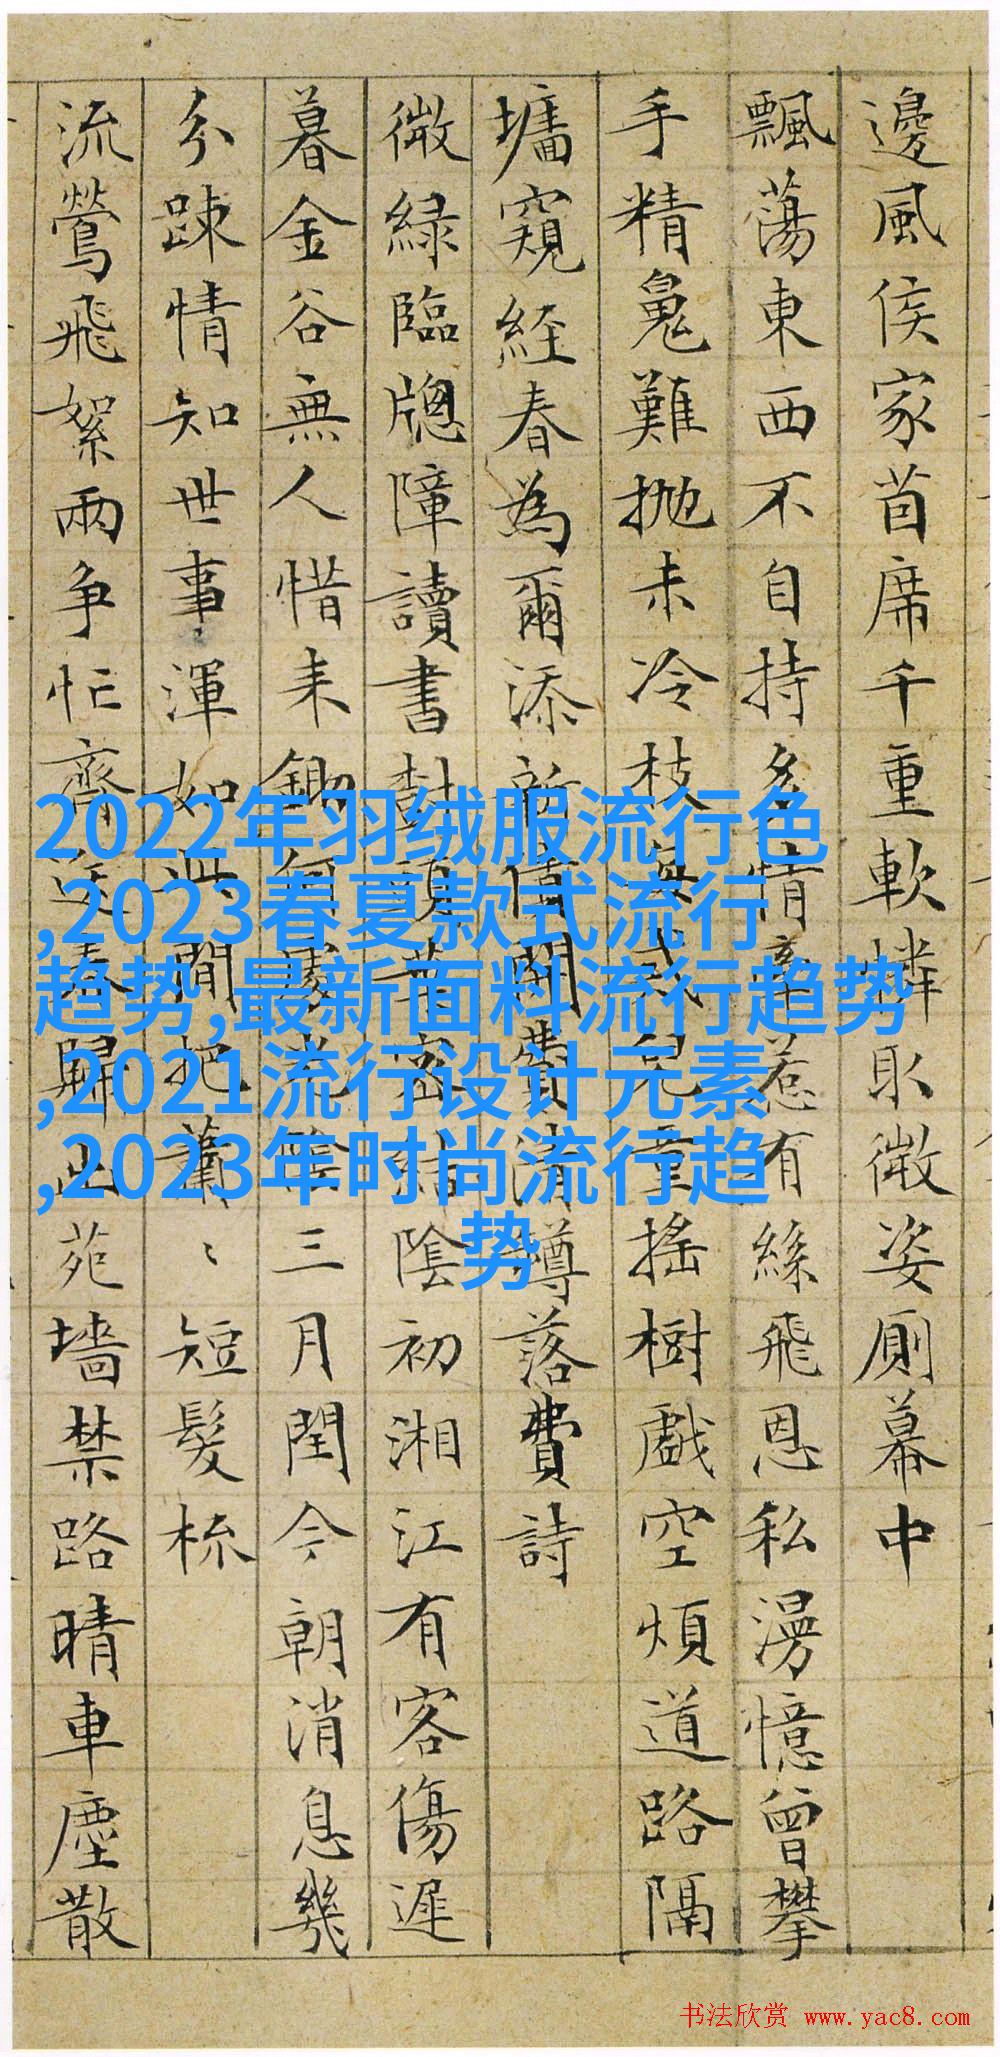 邊風侯家茵席千重軟憐取微姿廁幕中
飄蕩東西不自持多情牽惹有絲飛恩私漫憶曾攀
手精䰟難拋未冷枝兒童搖樹戲空煩道路隔
墻窺經春為爾添新債閑費清罇落費詩
微綠臨牕障讀書樹頭結陰初湘江有客傷遲
暮金谷無人惜耒鋤何處光陰三月閏今朝消息幾
分踈情知世事渾如此間把蕭〻短髮梳
流鶯飛絮兩爭忙齊送春歸出苑墻禁路晴車塵散
2022年羽绒服流行色
,2023春夏款式流行
趋势,最新面料流行趋势
,2021流行设计元素
,2023年时尚流行趋
势
书法欣赏 www.yac8.com